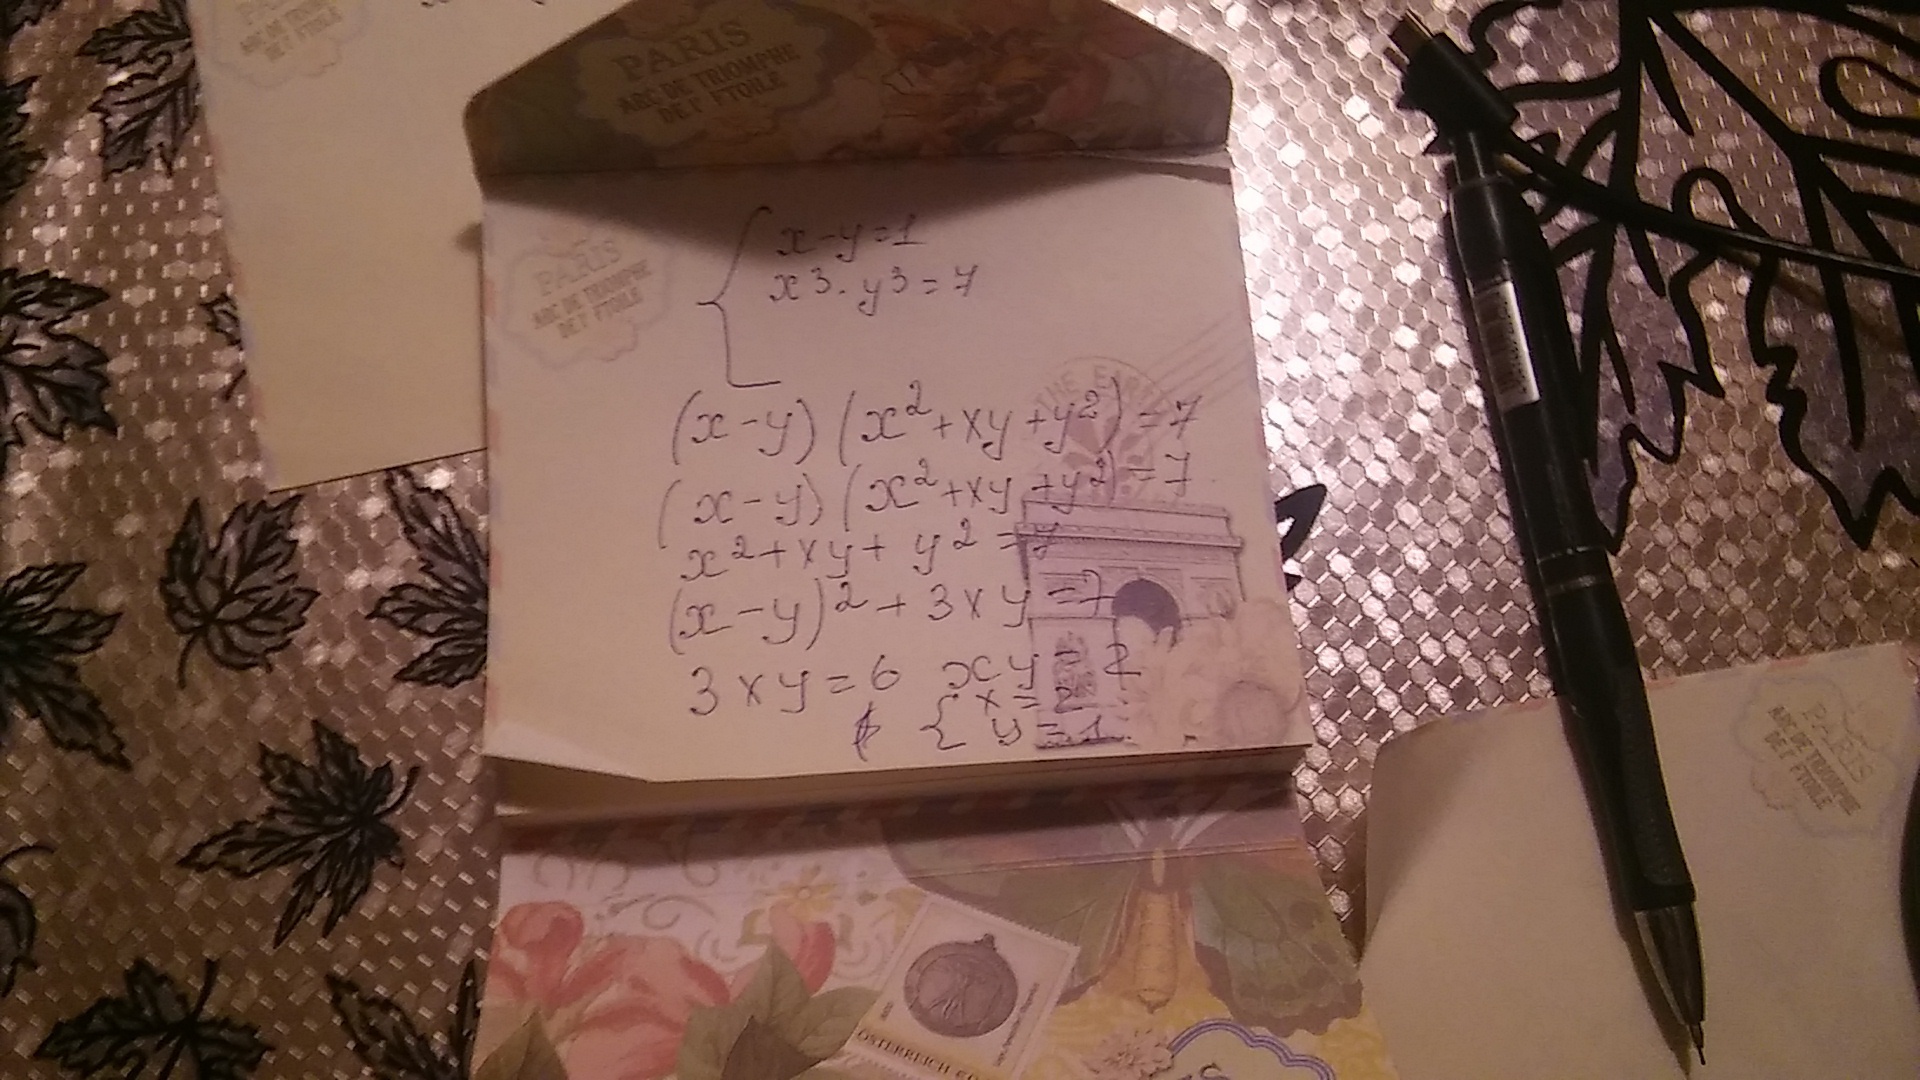 PARIS
ARC DE TRIOMPHE
DE L'ETOILE
PARIS
ARC DE TRIOMPHE
DE L'ETOILE
x-y=1
x3-y3=7
PARIS
ARC DE TRIOMPHE
DE L'ETOILE
THE EARTH
(x-y)(x2+xy+y2)=7
(x-y)(x2+xy+y2)=7
x2+xy+y2=7
(x-y)2+3xy=7
3xy=6 xy=2
{x=2
y=1
PARIS
ARC DE TRIOMPHE
DE L'ETOILE
ÖSTERREICH